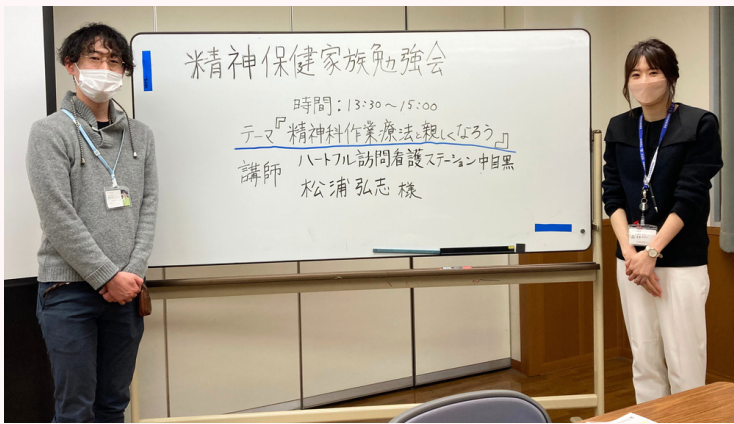 精神保健家族勉強会
時間：13:30～15:00
テーマ『精神科作業療法と親しくなろう』
講師 ハートフル訪問看護ステーション中目黒
松浦弘志 様